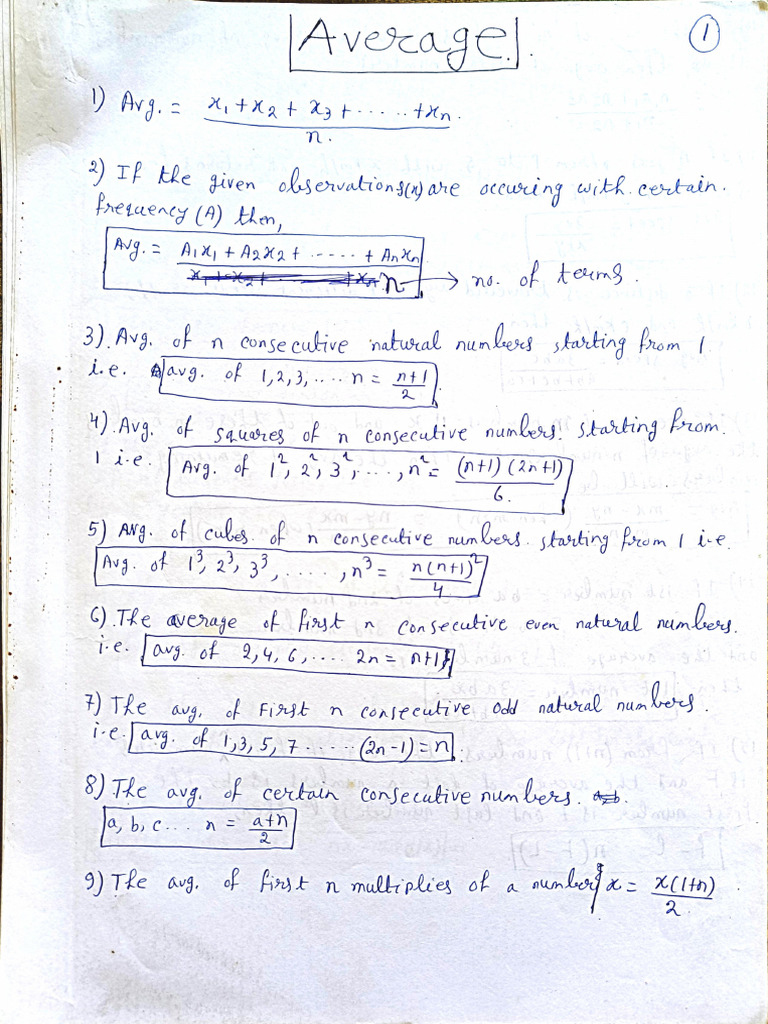 Average.
1
1) Avg. = x₁ + x₂ + x₃ + ...... + xn.
n.
2) If the given observations(x) are occuring with certain.
frequency (A) then,
Avg. = A₁x₁ + A₂x₂ + ...... + Anxn
n → no. of terms.
3) Avg. of n consecutive natural numbers starting from 1
i.e. avg. of 1, 2, 3, .... n = n+1
2
4) Avg. of squares of n consecutive numbers. starting from.
1 i.e. Avg. of 1², 2², 3², ...., n² = (n+1) (2n+1)
6.
5) Avg. of cubes of n consecutive numbers. starting from 1 i.e.
Avg. of 1³, 2³, 3³, ......, n³ = n(n+1)²
4
6) The average of first n consecutive even natural numbers.
i.e. avg. of 2, 4, 6, .... 2n = n+1
7) The avg. of First n consecutive odd natural numbers.
i.e. avg. of 1, 3, 5, 7 ...... (2n-1) = n
8) The avg. of certain consecutive numbers.
a, b, c ... n = a+n
2
9) The avg. of first n multiplies of a number x = x(1+n)
2